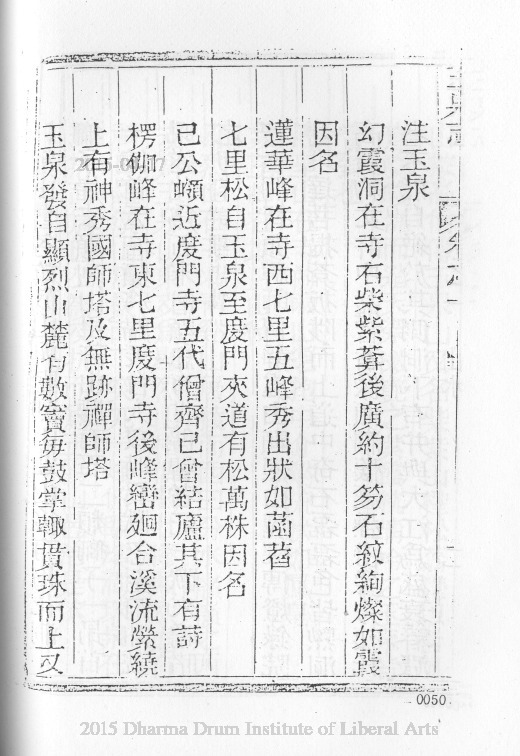 注玉泉
幻霞洞在寺石柴紫蓋後廣約十笏石紋絢燦如霞
因名
蓮華峰在寺西七里五峰秀出狀如菡萏
七里松自玉泉至度門夾道有松萬株因名
已公巓近度門寺五代僧齊已曾結廬其下有詩
楞伽峰在寺東七里度門寺後峰巒廻合溪流縈繞
上有神秀國師塔及無跡禪師塔
玉泉發自顯烈山麓有數竇每鼓掌輙貫珠而上又
0050
2015 Dharma Drum Institute of Liberal Arts